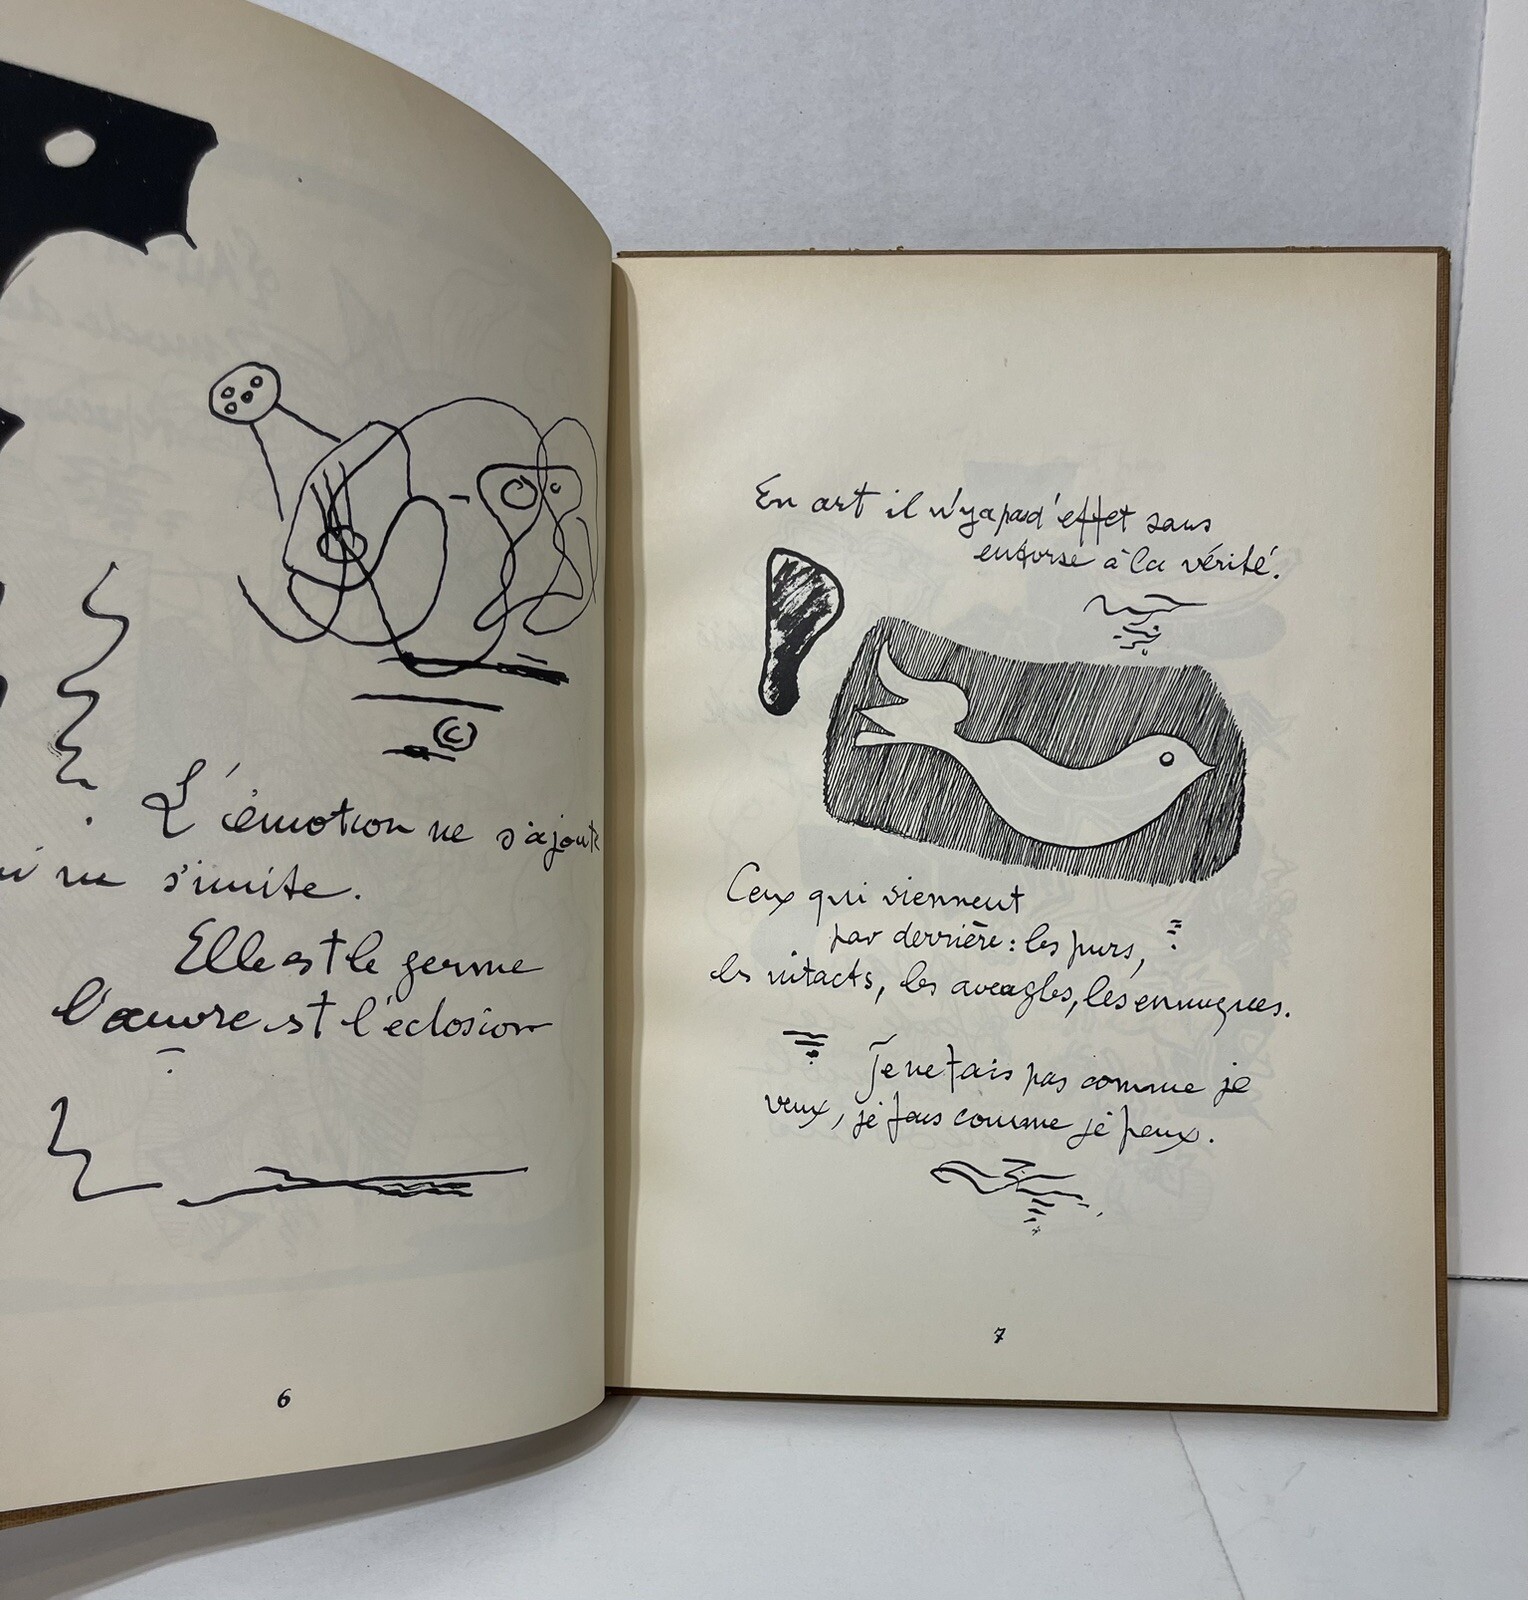 L'émotion ne s'ajoute
ni ne s'imite.
Elle est le germe
l'œuvre est l'éclosion
6
En art il n'y a pas d'effet sans
entorse à la vérité.
Ceux qui viennent
par derrière : les purs,
les intacts, les aveugles, les ennuques.
Je ne fais pas comme je
veux, je fais comme je peux.
7